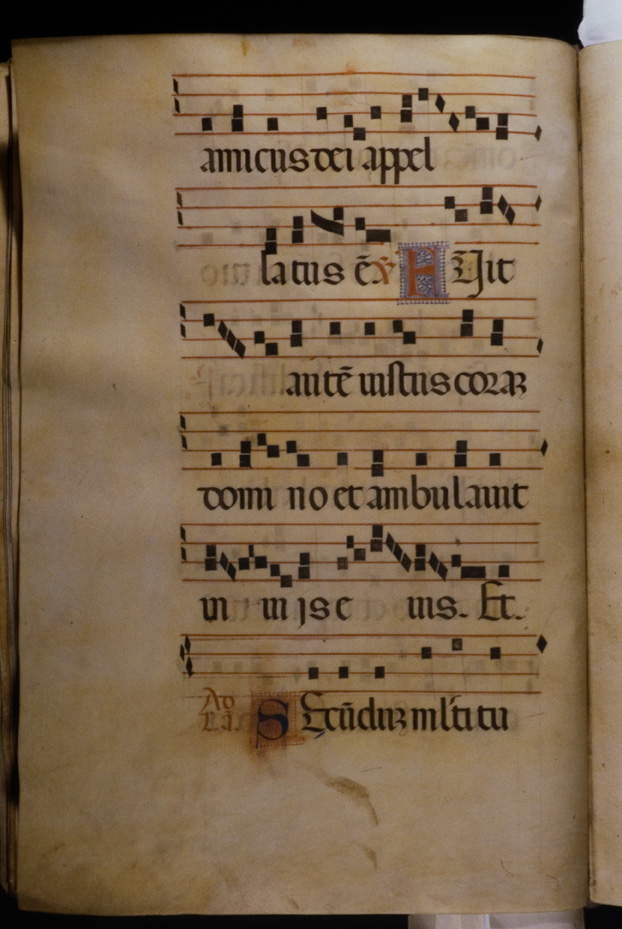 amicus dei appel
latus ē. ℣ Fuit
autē iustus coraꝫ
domi no et ambulauit
in uijs e ius. Et.
Ad La. Scūduꝫ multitu